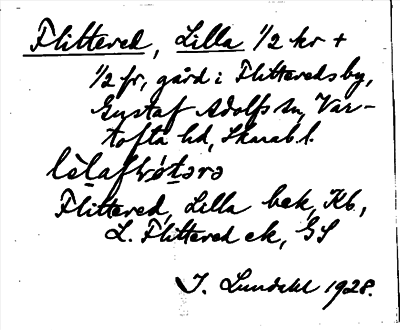 Flittered, Lilla 1/2 kr +
1/2 fr, gård i Flittereds by,
Gustaf Adolfs sn, Var-
tofta hd, Skarab. l.
Flittered, Lilla bek, Kb,
L. Flittered ek, GS
J. Lundahl 1928.